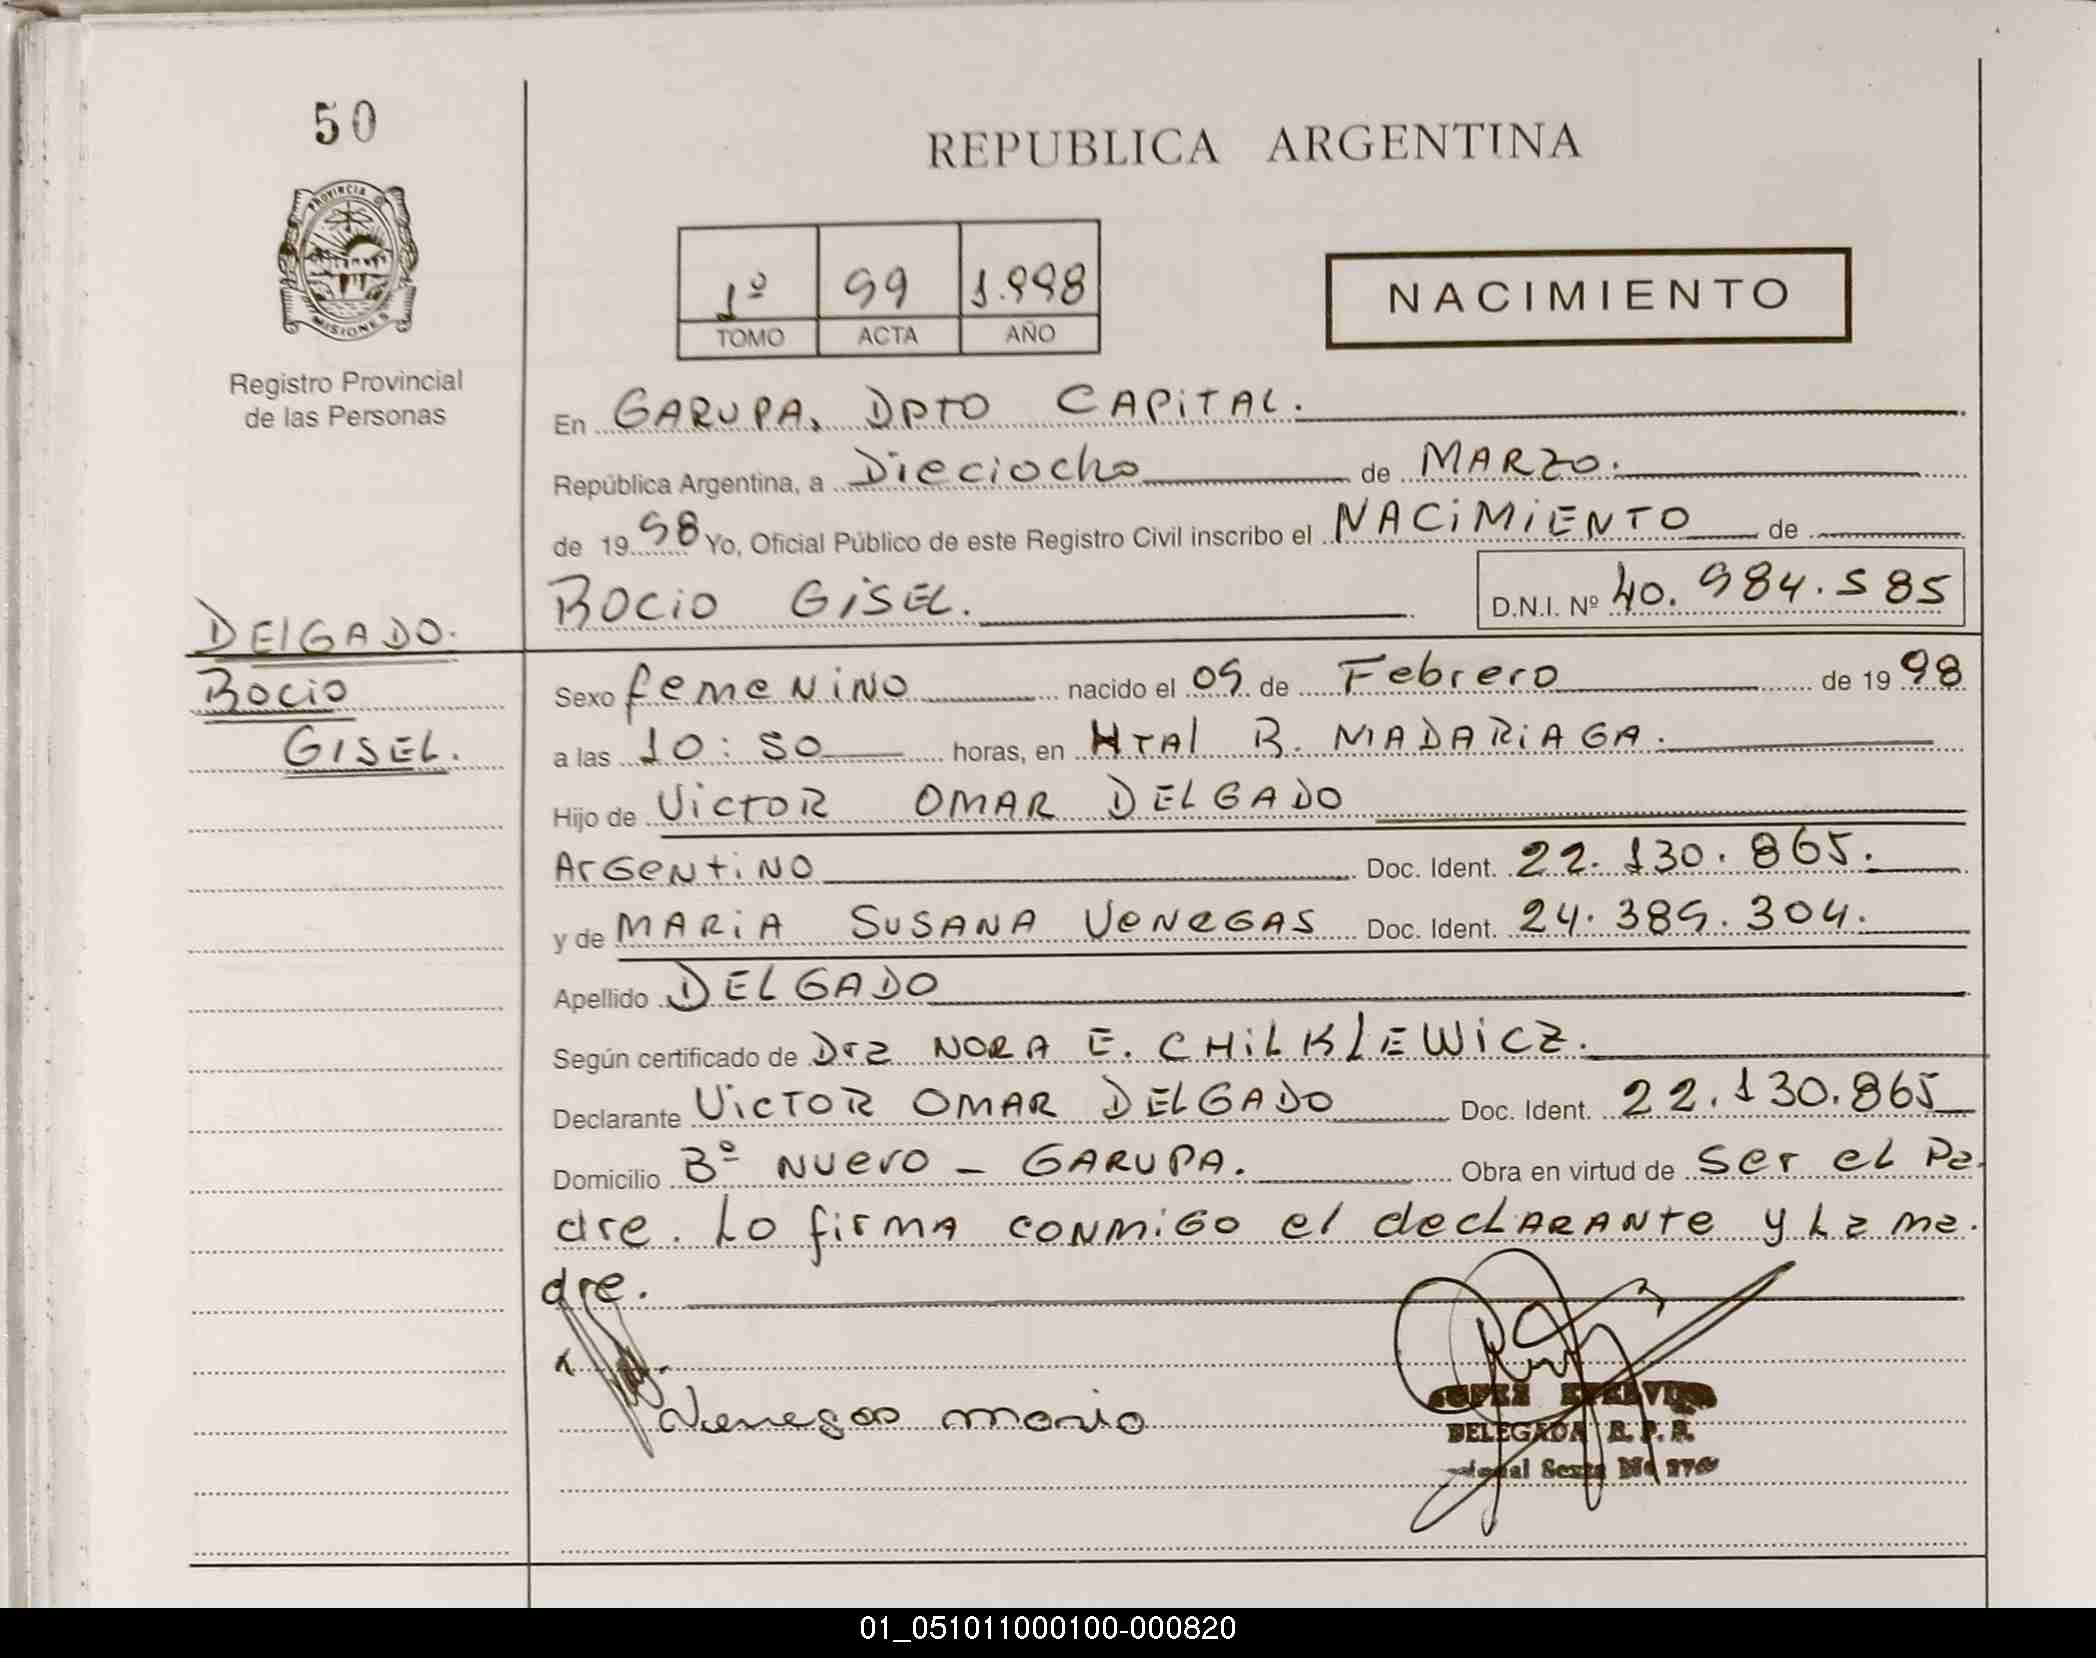 50
PROVINCIA DE
MISIONES
Registro Provincial
de las Personas
REPUBLICA ARGENTINA
1º 99 1.998
TOMO ACTA AÑO
NACIMIENTO
En GARUPA, DPTO CAPITAL.
República Argentina, a Dieciocho de MARZO.
de 1998 Yo, Oficial Público de este Registro Civil inscribo el NACIMIENTO de
ROCIO GISEL. D.N.I. Nº 40.984.585
DELGADO.
Rocio
GISEL.
Sexo femeNiNO nacido el 09 de Febrero de 1998
a las 10:50 horas, en Htal R. MADARIAGA.
Hijo de VICTOR OMAR DELGADO
ArGeNtiNO Doc. Ident. 22.130.865.
y de MARIA SUSANA VENEGAS Doc. Ident. 24.389.304.
Apellido DELGADO
Según certificado de Dra NORA E. CHILKLEWICZ.
Declarante VICTOR OMAR DELGADO Doc. Ident. 22.130.865
Domicilio Bº NUEVO - GARUPA. Obra en virtud de Ser el Pa
dre. Lo firma conmigo el declarante y La ma.
dre.
Venegas Maria
DELEGADA R.P.P.
01_051011000100-000820